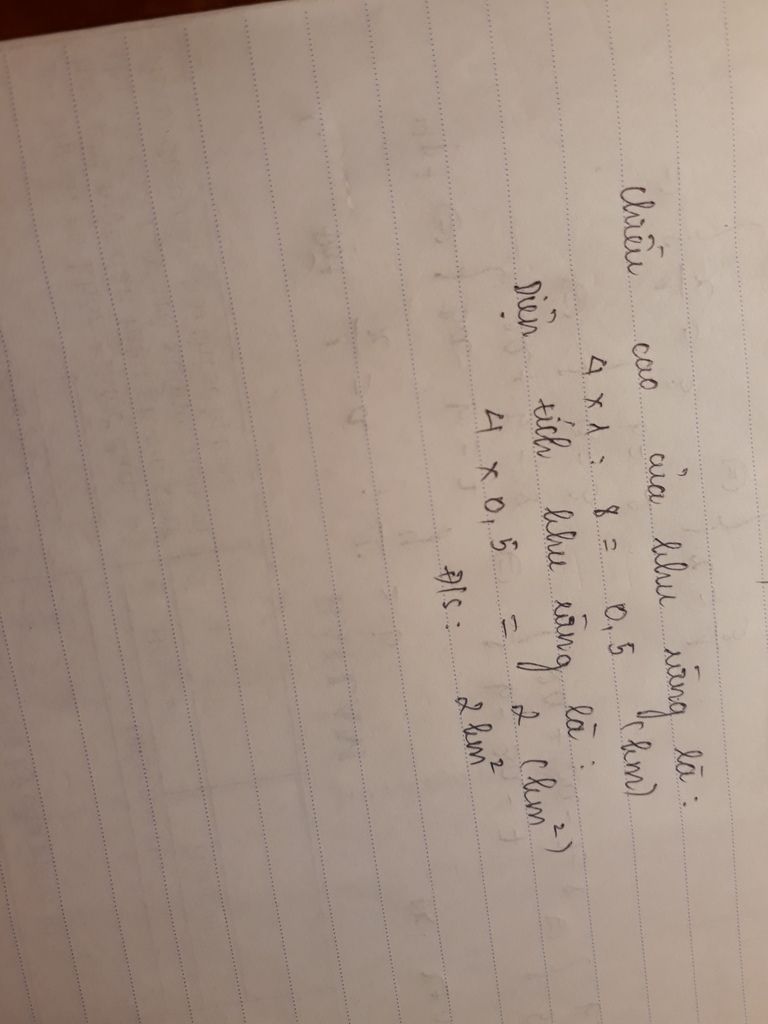 Chiều cao của khu rừng là :
4 x 1 : 8 = 0,5 (km)
Diện tích khu rừng là :
4 x 0,5 = 2 (km²)
Đ/S : 2 km²